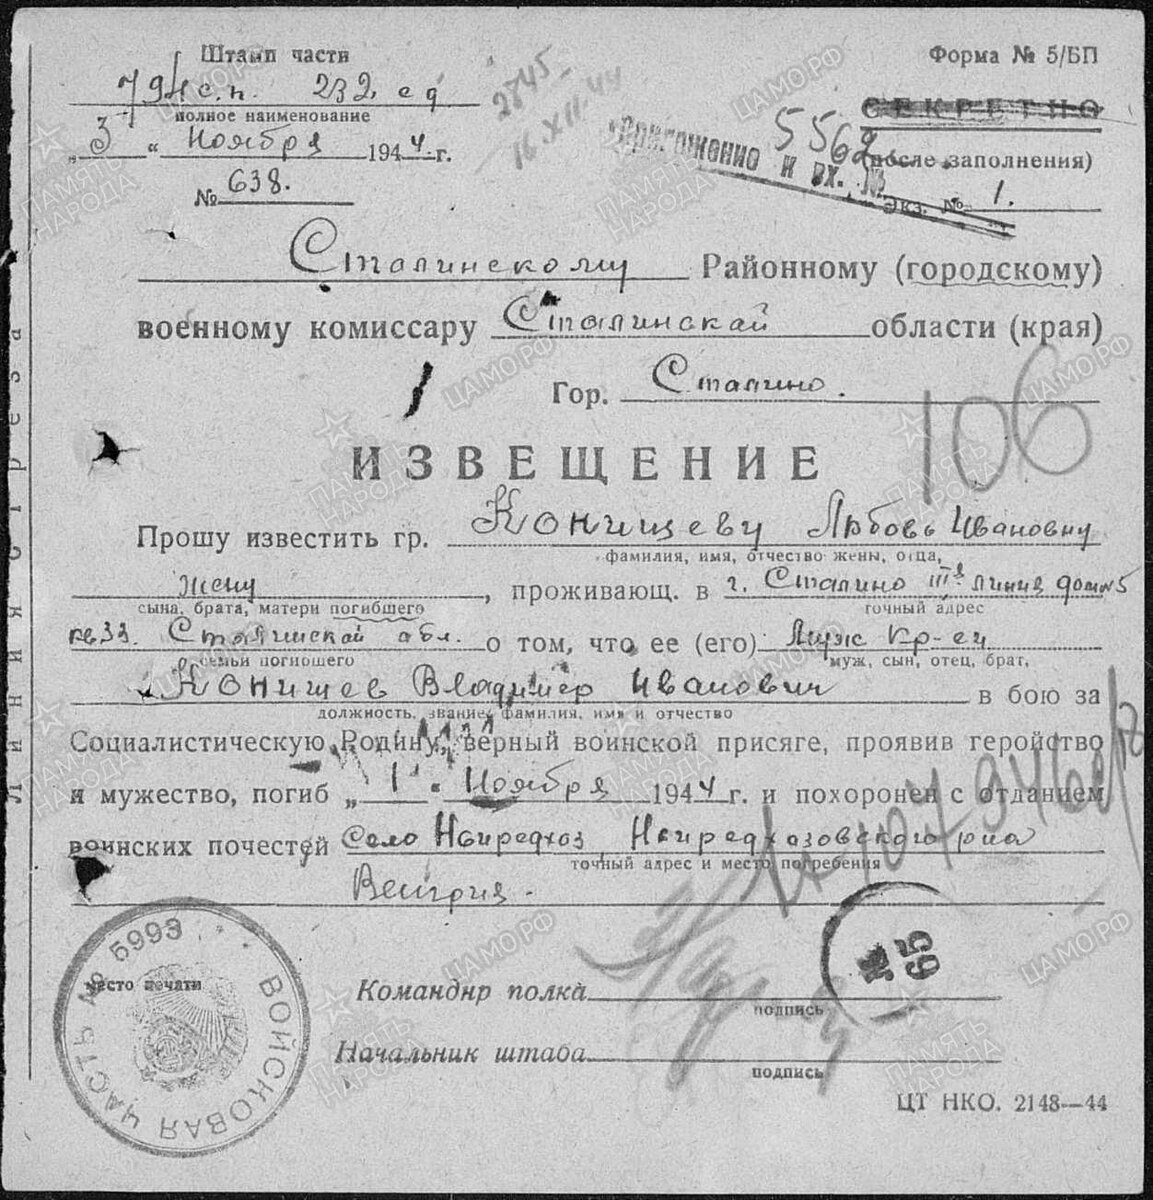 Штамп части
Форма № 5/БП
794 с.п. 232 сд
полное наименование
СЕКРЕТНО
(после заполнения)
„3“ Ноября 1944 г.
2845
16 XII 44
Приложение к вх. № 5562
№ 638.
Экз. № 1.
Сталинскому Районному (городскому)
военному комиссару Сталинской области (края)
Гор. Сталино.
106
ИЗВЕЩЕНИЕ
Прошу известить гр. Конищеву Любовь Ивановну
фамилия, имя, отчество жены, отца,
жену, проживающ. в г. Сталино III я линия дом 5
сына, брата, матери погибшего
точный адрес
кв 33. Сталинской обл. о том, что ее (его) Муж Кр-ец
семьи погибшего
муж, сын, отец, брат,
Конищев Владимир Иванович в бою за
должность, звание, фамилия, имя и отчество
Социалистическую Родину, верный воинской присяге, проявив геройство
и мужество, погиб „1“ Ноября 1944 г. и похоронен с отданием
воинских почестей Село Ниредхоз Ниредхозовского р-на
точный адрес и место погребения
Венгрия.
Место печати
ВОЙСКОВАЯ ЧАСТЬ № 5993
№ 65
Командир полка
подпись
Начальник штаба
подпись
ЦТ НКО. 2148—44
Линия отреза
ПАМЯТЬ НАРОДА
ЦАМО.РФ